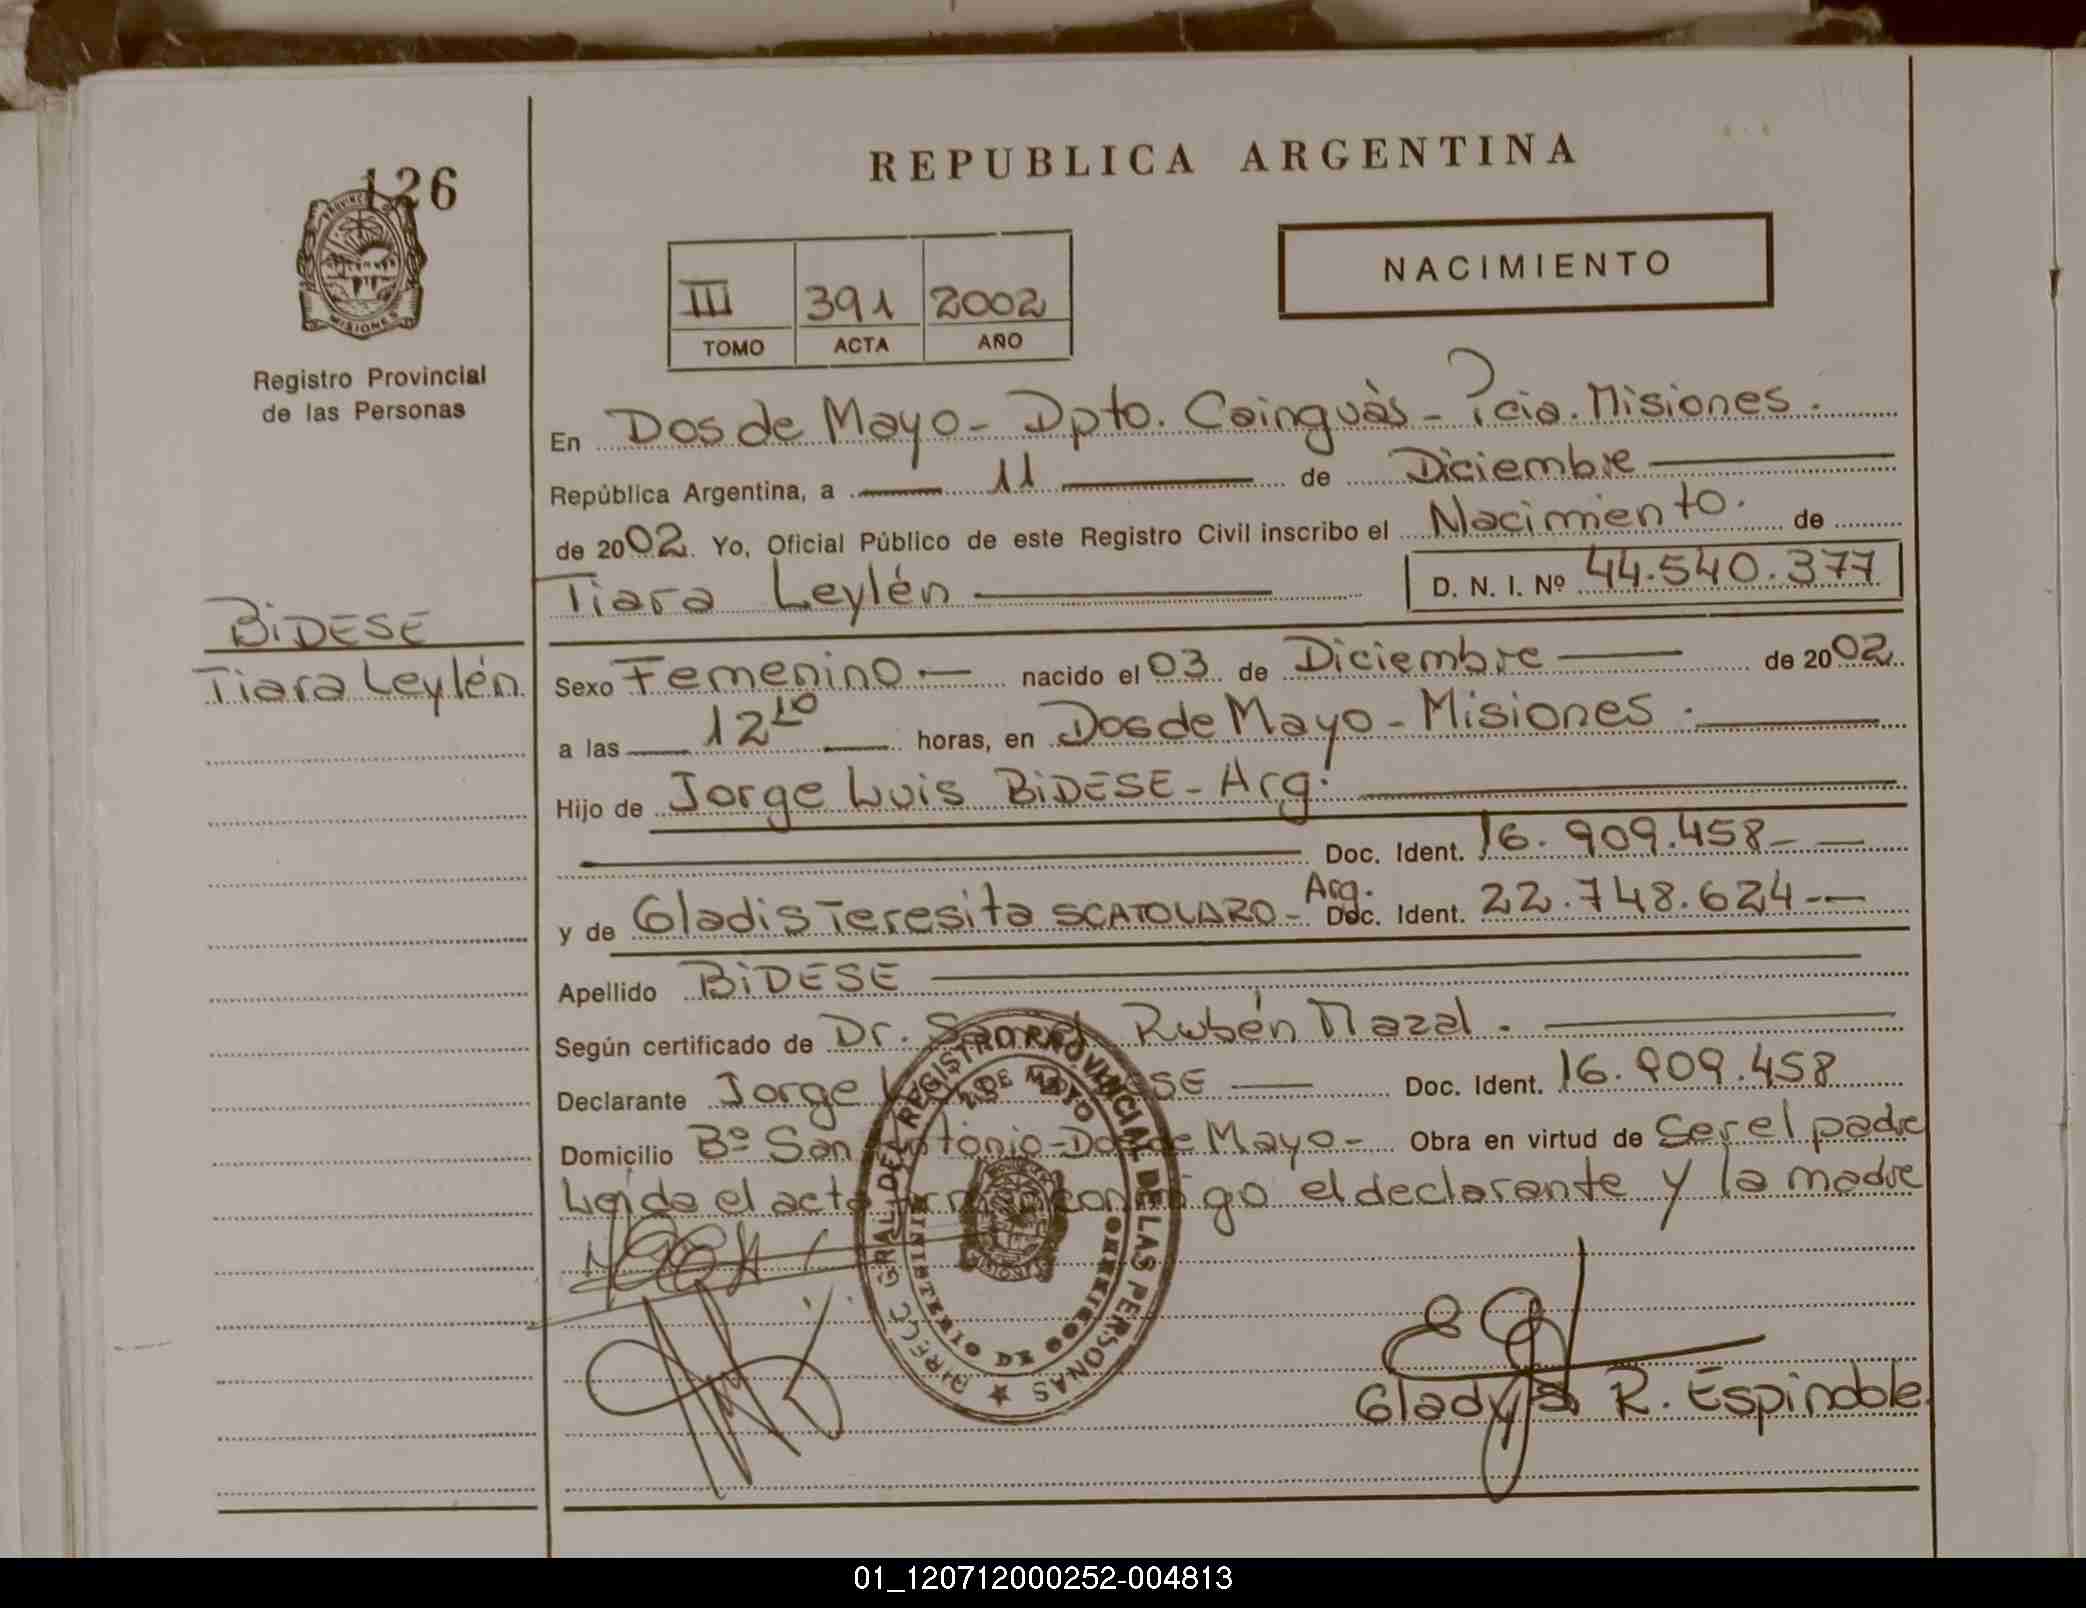 126
PROVINCIA DE
MISIONES
Registro Provincial
de las Personas
REPUBLICA ARGENTINA
III 391 2002
TOMO ACTA AÑO
NACIMIENTO
En Dos de Mayo - Dpto. Cainguás - Pcia. Misiones.
República Argentina, a 11 de Diciembre
de 2002. Yo, Oficial Público de este Registro Civil inscribo el Nacimiento. de
Tiara Leylén D. N. I. Nº 44.540.377
BiDESE
Tiara Leylén
Sexo Femenino - nacido el 03 de Diciembre de 2002
a las 12 10 horas, en Dos de Mayo - Misiones.
Hijo de Jorge Luis BiDESE - Arg.
Doc. Ident. 16.909.458
y de Gladis Teresita SCATOLARO - Arg. Doc. Ident. 22.748.624
Apellido BiDESE
Según certificado de Dr. Rubén Mazal.
Declarante Jorge Doc. Ident. 16.909.458
Domicilio Bº San Antonio - Dos de Mayo - Obra en virtud de ser el padre
Leida el acta firman conmigo el declarante y la madre
DIRECC. GRAL. DEL REGISTRO PROVINCIAL DE LAS PERSONAS
2 DE MAYO
MINISTERIO DE GOBIERNO
Gladys R. Espindola
01_120712000252-004813